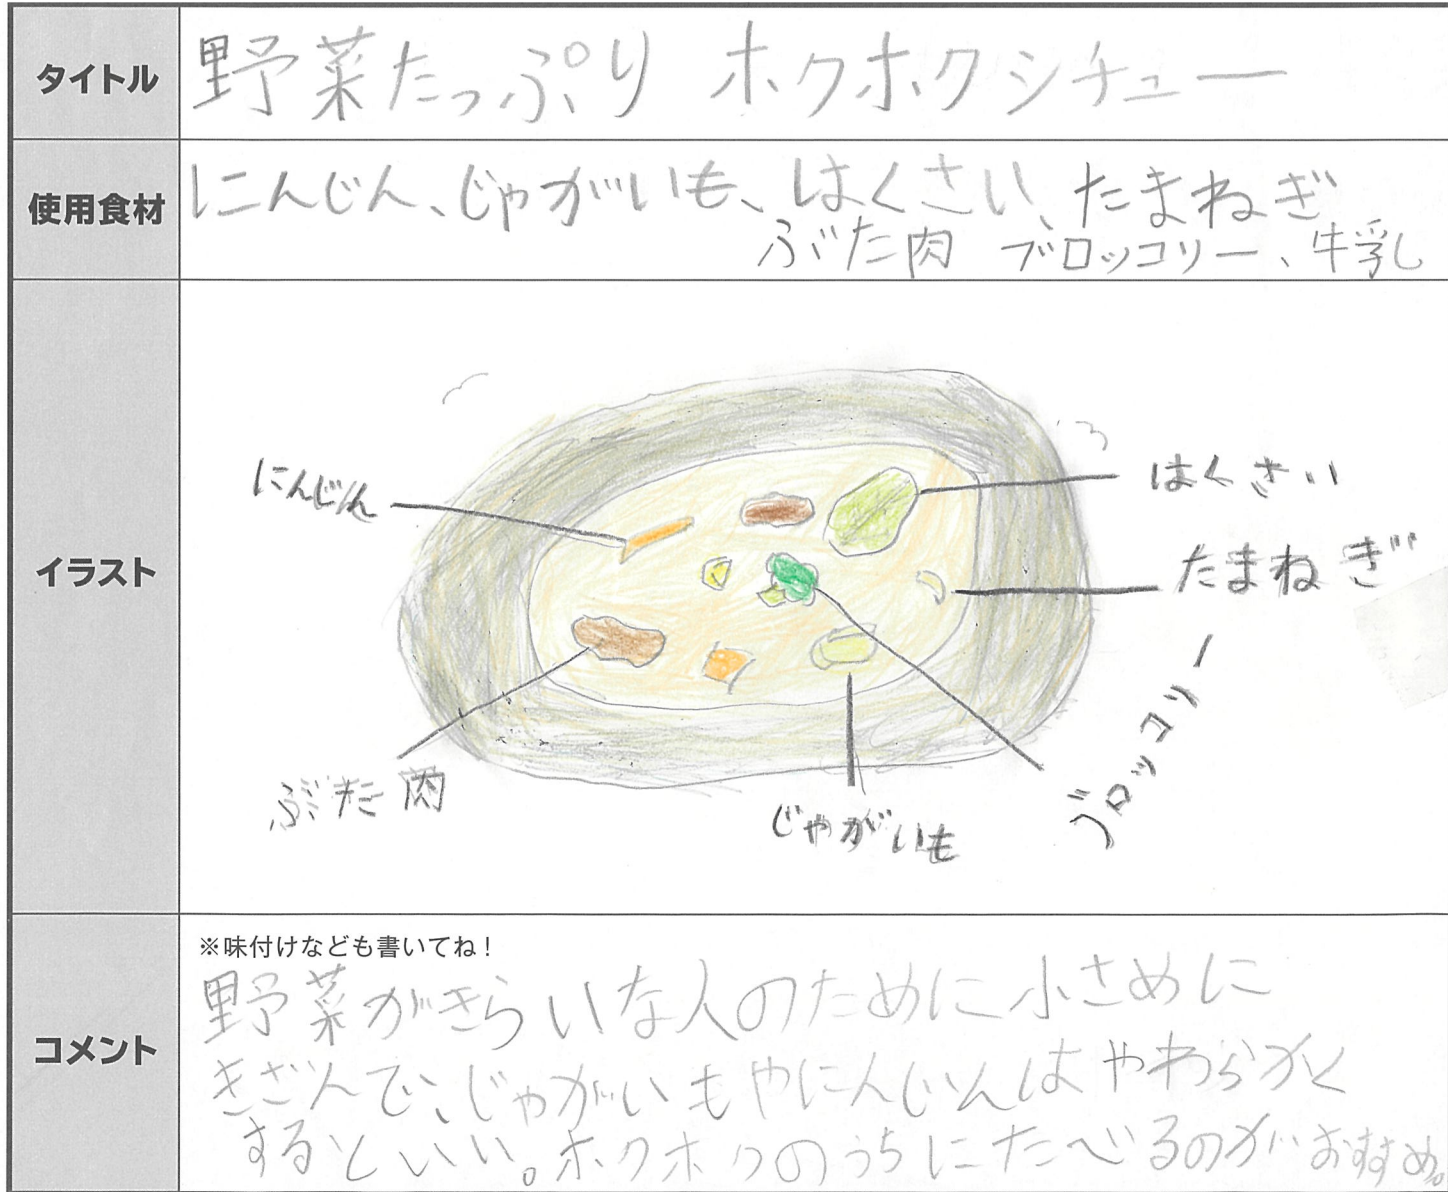 タイトル
野菜たっぷり ホクホクシチュー
使用食材
にんじん、じゃがいも、はくさい、たまねぎ
ぶた肉 ブロッコリー、牛乳し
イラスト
にんじん
はくさい
たまねぎ
ブロッコリー
ぶた肉
じゃがいも
コメント
※味付けなども書いてね!
野菜がきらいな人のために小さめに
きざんで、じゃがいもやにんじんはやわらかく
するといい。ホクホクのうちにたべるのがおすすめ。